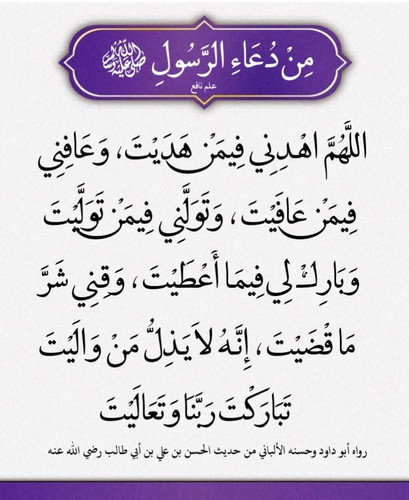 مِنْ دُعَاءِ الرَّسُولِ ﷺ
علم نافع
اللَّهُمَّ اهْدِنِي فِيمَنْ هَدَيْتَ، وَعَافِنِي
فِيمَنْ عَافَيْتَ، وَتَوَلَّنِي فِيمَنْ تَوَلَّيْتَ
وَبَارِكْ لِي فِيمَا أَعْطَيْتَ، وَقِنِي شَرَّ
مَا قَضَيْتَ، إِنَّهُ لاَ يَذِلُّ مَنْ وَالَيْتَ
تَبَارَكْتَ رَبَّنَا وَتَعَالَيْتَ
رواه أبو داود وحسنه الألباني من حديث الحسن بن علي بن أبي طالب رضي الله عنه